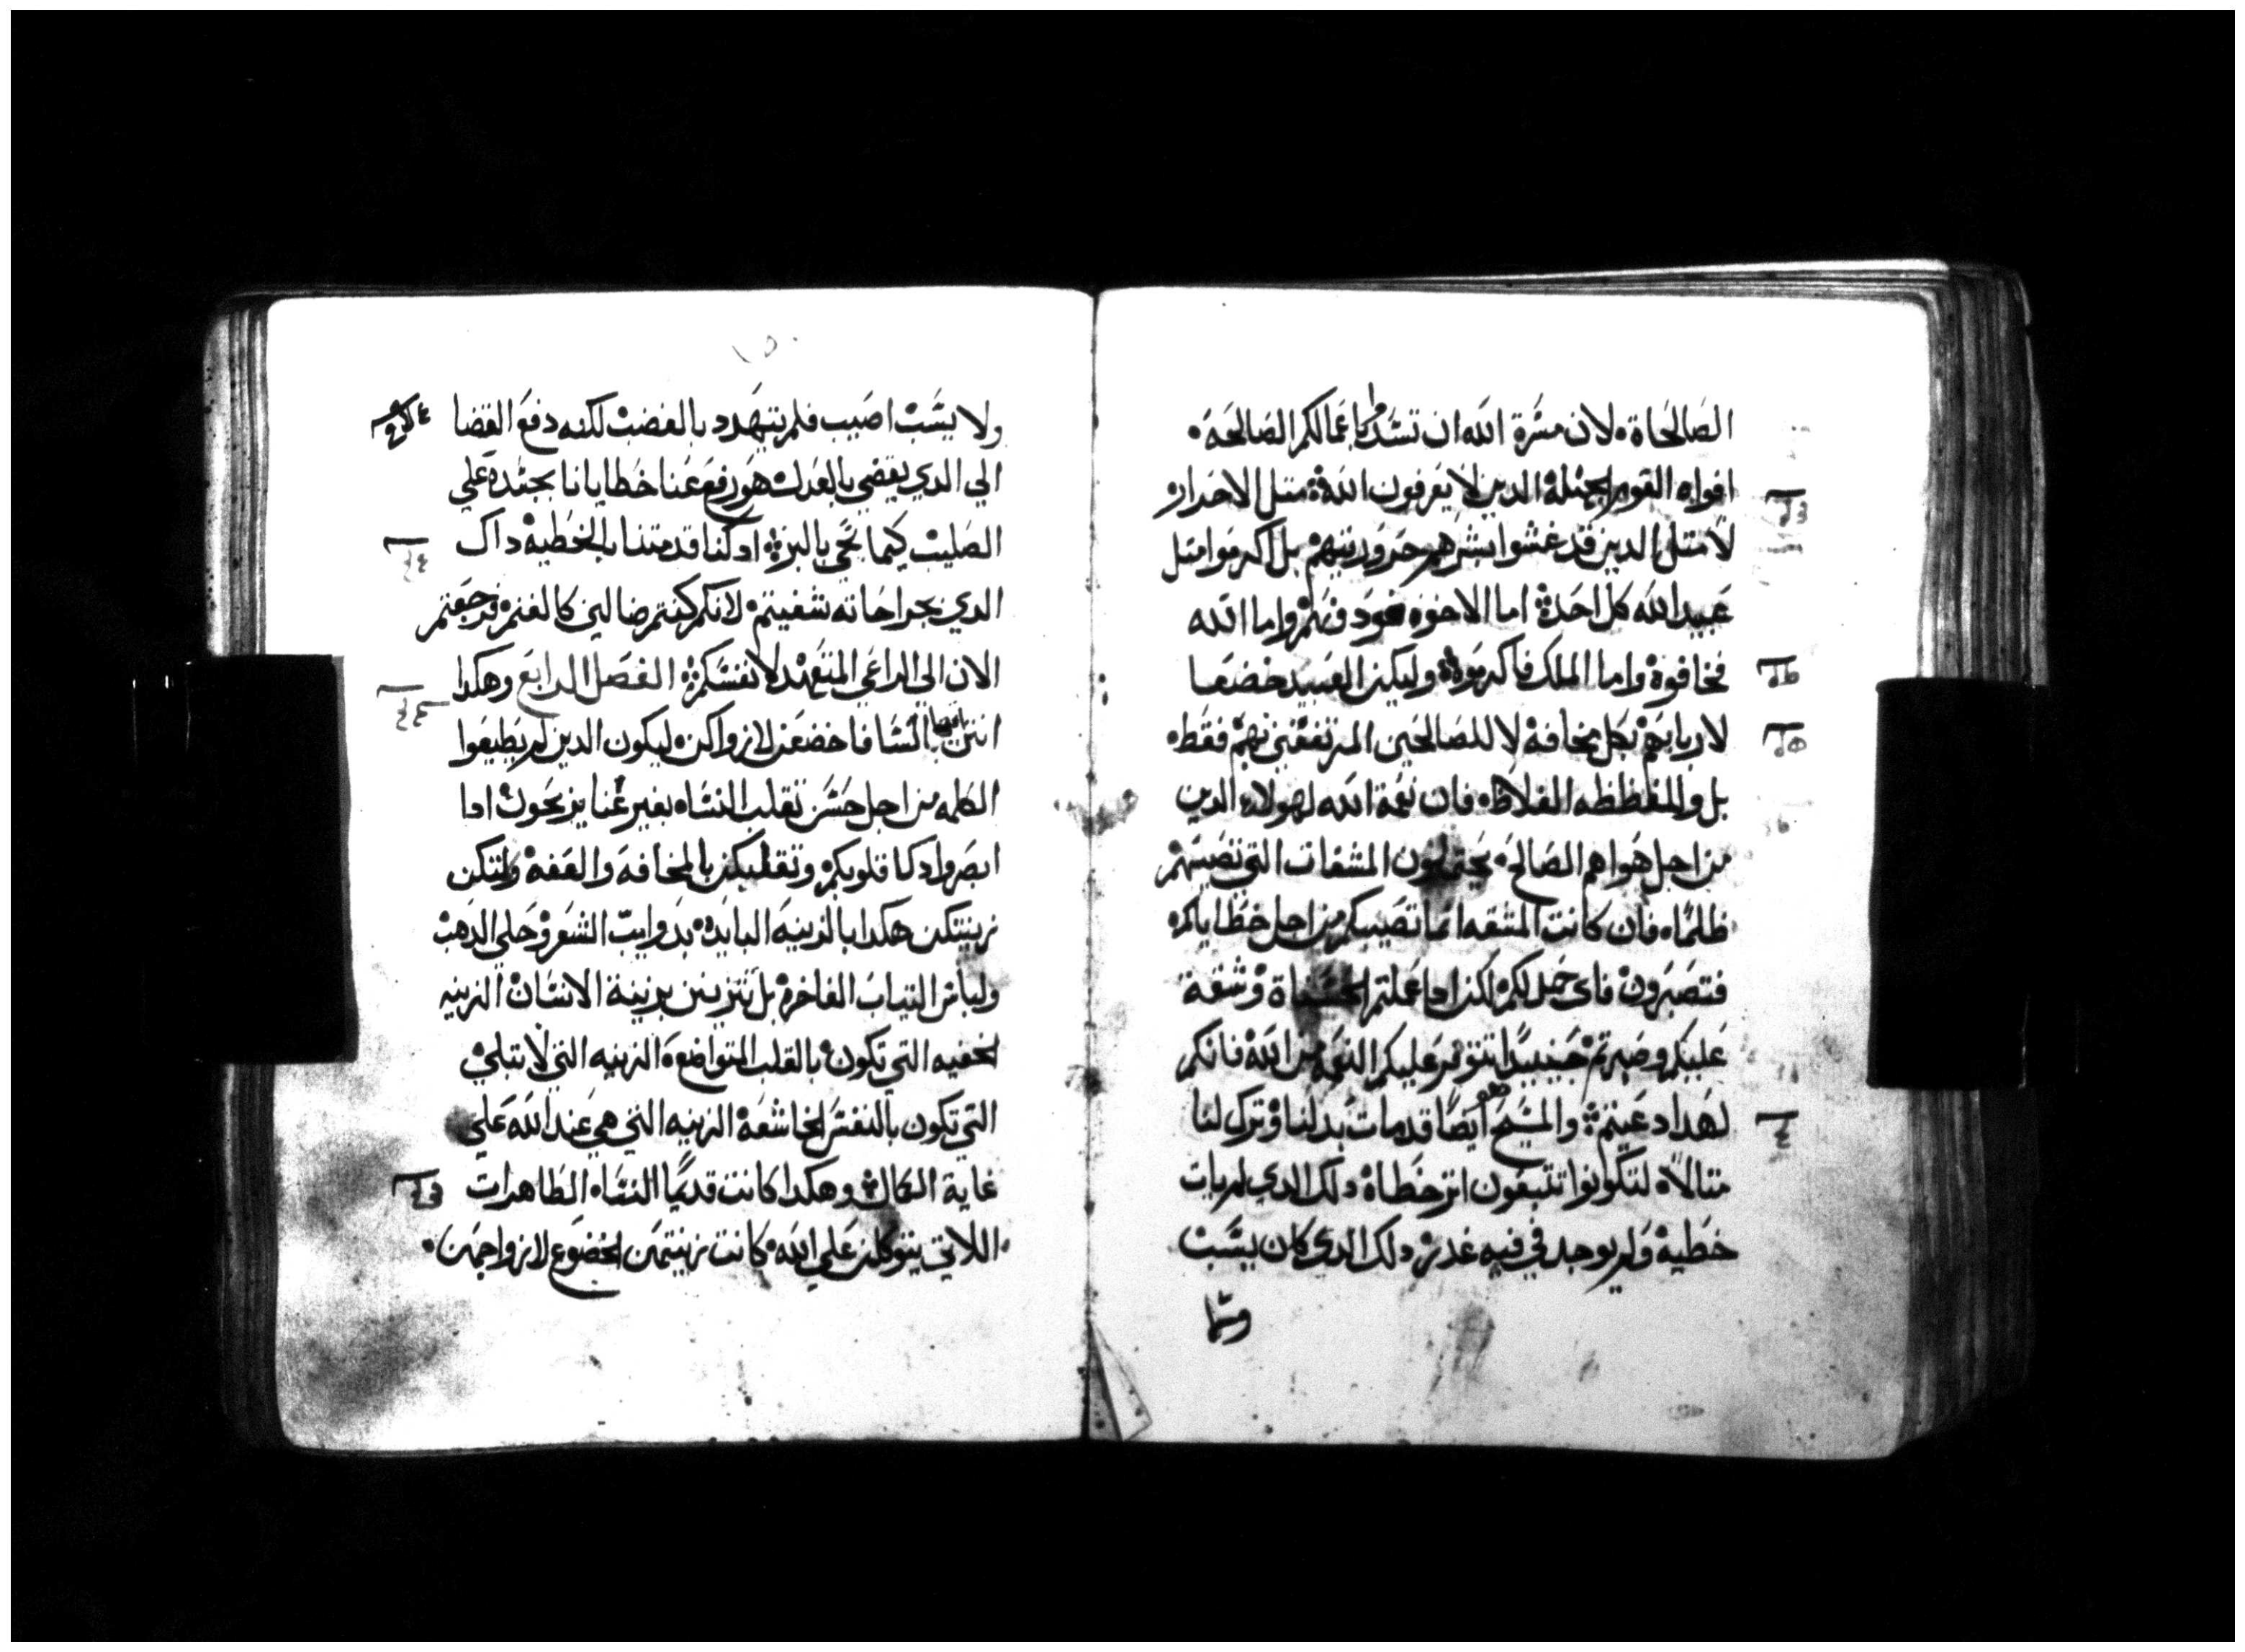 الصالحاة لان مسرة الله ان تسدوا باعمالكم الصالحه
افواه القوم الجهلة الدين لا يعرفون الله مثل الاحرار
لا مثل الدين قد غشوا بشرهم حروريتهم بل اكرموا مثل
عبيد الله كل احدة اما الاخوه فودوهم واما الله
فخافوة واما الملك فاكرموة وليكن العبيد خضعا
لاربابهم بكل مخافة لا للصالحين المترفقين بهم فقط
بل وللفظظه الغلاظ فان نعمة الله لهولاء الدين
من اجل هواهم الصالحه يحتملون المشقات التي تصيبهم
ظلما فان كانت المشقه انما تصيبكم من اجل خطاياكم
فتصبرون فاى حمل لكم لكن ادا عملتم الحسناة وشقة
عليكم وصبرتم حينيدا تتوفر عليكم النعمه من الله فانكم
لهدا دعيتم والمسيح هو ايضا قد مات بدلنا وترك لنا
متالا لتكونوا تتبعون اتر خطاة دلك الدي لم يات
خطية ولم يوجد في فيه غدر دلك الدي كان يسب
ولا يسب اصيب فلم يتهدد بالغضب لكنه دفع القضا
الي الدي يقضي بالعدل هو رفع عنا خطايانا بجسدة علي
الصليب كيما نحي بالبر اد كنا قد متنا بالخطية داك
الدي بجراحاته شفيتم لانكم كنتم ضالين كالغنم فرجعتم
الان الي الراعي المتعهد لانفسكم الفصل الرابع وهكدا
انتن ايضا يا نسا فاخضعن لازواكن ليكون الدين لم يطيعوا
الكلمه من اجل حسن تقلب النساه بغير عنا يربحون ادا
ابصروا دكا قلوبكم وتقلبكن بالمخافة والعفة ولتكن
زينتكن هكدا بالزينه البايده بدوايب الشعر وحلي الدهب
ولباس التياب الفاخرة بل تتزينن بزينة الانسان الزينه
الخفيه التي تكون بالقلب المتواضعة الزينه التي لا تبلي
التي تكون بالنفس الخاشعة الزينه التي هي عند الله علي
غاية الكمال وهكدا كانت قديما النساه الطاهرات
اللاتي يتوكلن علي الله كانت زينتهن الخضوع لازواجهن